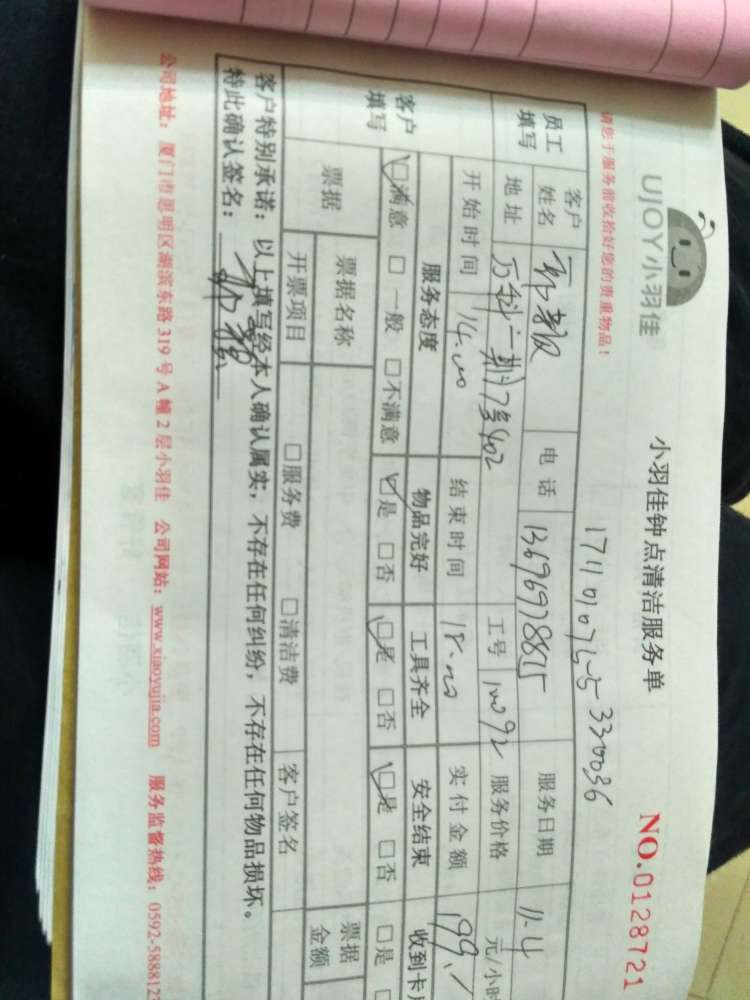 UJOY小羽佳
小羽佳钟点清洁服务单
NO.0128721
请您于服务前收拾好您的贵重物品！
330036
员工填写
客户姓名
电话 13696978815
服务日期 11.4
地址 万科二期17多402
工号
服务价格 元/小时
开始时间 14.00
结束时间 18.00
实付金额 199.
客户填写
服务态度 物品完好 工具齐全 安全结束 收到卡
□满意 □一般 □不满意 □是 □否 □是 □否 □是 □否 □是
票据 票据名称 票据金额
开票项目 □服务费 □清洁费 客户签名
客户特别承诺：以上填写经本人确认属实，不存在任何纠纷，不存在任何物品损坏。
特此确认签名：
公司地址：厦门市思明区湖滨东路319号A幢2层小羽佳 公司网站：www.xiaoyujia.com 服务监督热线：0592-588812